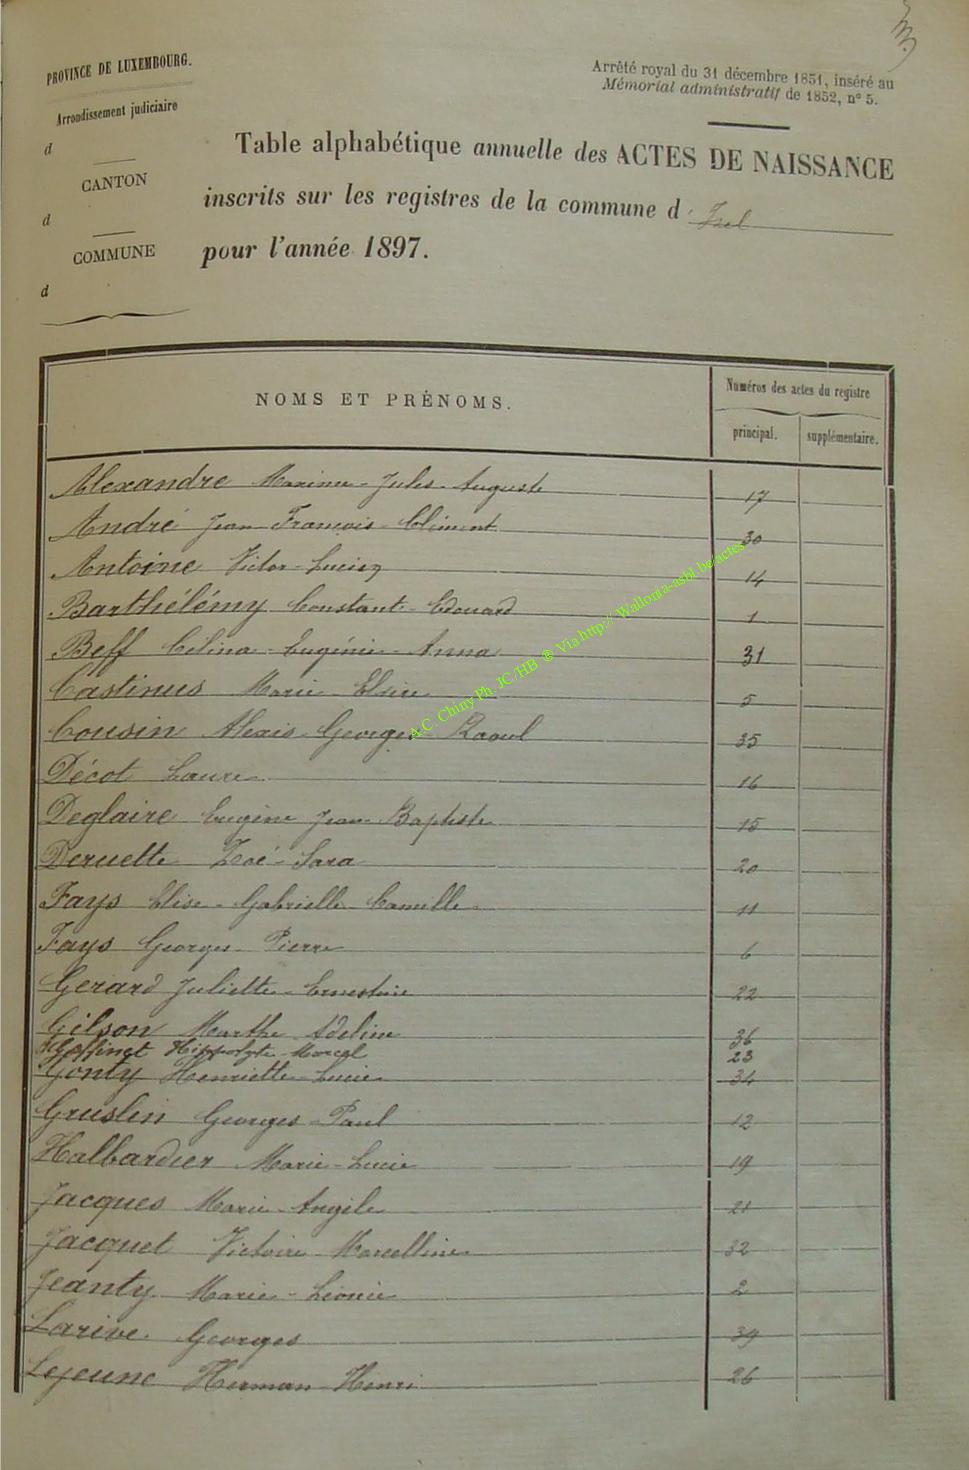 PROVINCE DE LUXEMBOURG.
Arrondissement judiciaire
d
CANTON
d
COMMUNE
d
Arrêté royal du 31 décembre 1851, inséré au
Mémorial administratif de 1852, n° 5.
Table alphabétique annuelle des ACTES DE NAISSANCE
inscrits sur les registres de la commune d'Izel
pour l'année 1897.
NOMS ET PRÉNOMS.
Numéros des actes du registre
principal. supplémentaire.
Alexandre Maxime-Jules-Auguste 17
André Jean-François-Clément 30
Antoine Victor-Lucien 14
Barthélémy Constant-Edouard 1
Beff Célina-Eugénie-Anna 31
Castinus Marie 5
Cousin Alexis-Georges-Raoul 35
Décot Laure 16
Deglaire Eugène Jean-Baptiste 15
Deruette Zoé-Sara 20
Fays Elise-Gabrielle-Camille 11
Fays Georges-Pierre 6
Gérard Juliette-Ernestine 22
Gilson Marthe Adeline 36
Goffinet Hippolyte-Marcel 23
Gonty Henriette-Lucie 34
Gruslin Georges-Paul 12
Halbardier Marie-Lucie 19
Jacques Marie-Angèle 21
Jacquet Victoire-Marcelline 32
Jeanty Marie-Léonie 2
Larive Georges 39
Lejeune Herman-Henri 26
A.C. Chiny Ph. JC/HB © Via http://Wallonia-asbl.be/actes